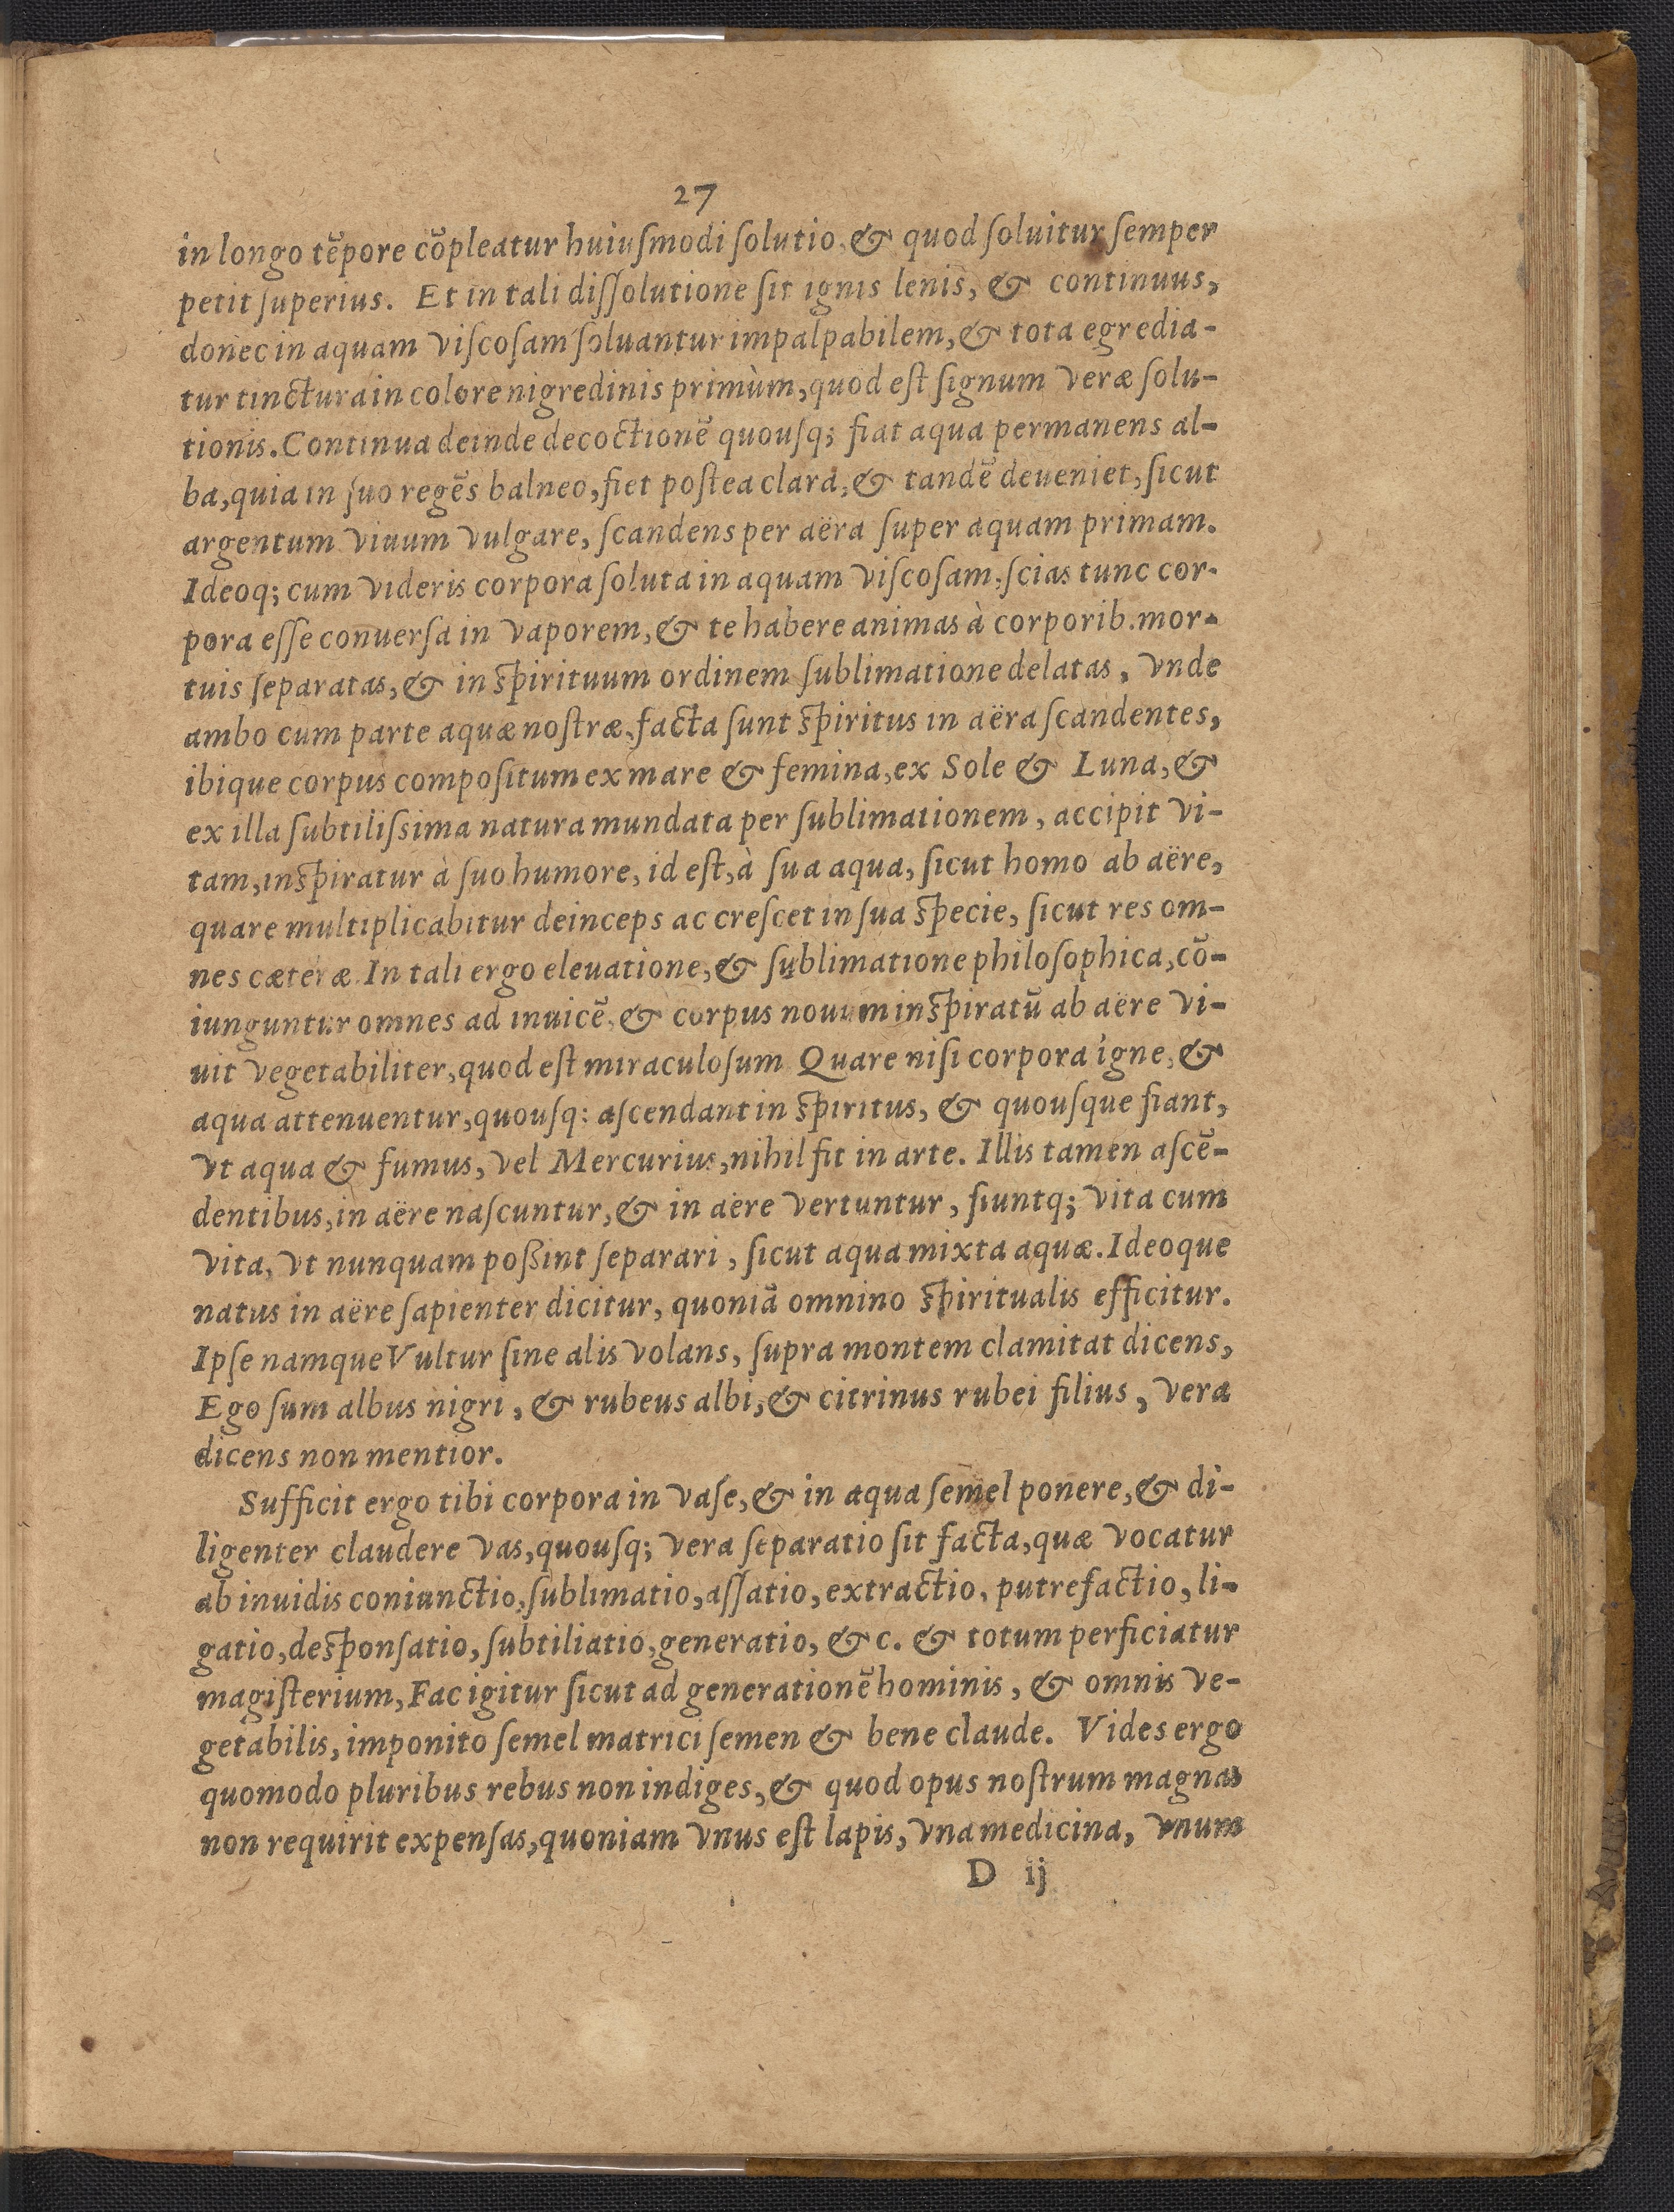 27
in longo tẽpore cõpleatur huiuſmodi ſolutio, & quod ſoluitur ſemper
petit ſuperius. Et in tali diſſolutione ſit ignis lenis, & continuus,
donec in aquam viſcoſam ſoluantur impalpabilem, & tota egredia-
tur tinctura in colore nigredinis primùm, quod eſt ſignum veræ ſolu-
tionis. Continua deinde decoctionẽ quouſq; fiat aqua permanens al-
ba, quia in ſuo regẽs balneo, fiet poſtea clara, & tandẽ deueniet, ſicut
argentum viuum vulgare, ſcandens per aëra ſuper aquam primam.
Ideoq; cum videris corpora ſoluta in aquam viſcoſam, ſcias tunc cor-
pora eſſe conuerſa in vaporem, & te habere animas à corporib. mor-
tuis ſeparatas, & in ſpirituum ordinem ſublimatione delatas, vnde
ambo cum parte aquæ noſtræ, facta ſunt ſpiritus in aëra ſcandentes,
ibique corpus compoſitum ex mare & femina, ex Sole & Luna, &
ex illa ſubtiliſsima natura mundata per ſublimationem, accipit vi-
tam, inſpiratur à ſuo humore, id eſt, à ſua aqua, ſicut homo ab aëre,
quare multiplicabitur deinceps ac creſcet in ſua ſpecie, ſicut res om-
nes cæteræ. In tali ergo eleuatione, & ſublimatione philoſophica, cõ-
iunguntur omnes ad inuicẽ, & corpus nouum inſpiratũ ab aëre vi-
uit vegetabiliter, quod eſt miraculoſum Quare niſi corpora igne, &
aqua attenuentur, quouſq: aſcendant in ſpiritus, & quouſque fiant,
vt aqua & fumus, vel Mercurius, nihil fit in arte. Illis tamen aſcẽ-
dentibus, in aëre naſcuntur, & in aëre vertuntur, fiuntq; vita cum
vita, vt nunquam poßint ſeparari, ſicut aqua mixta aquæ. Ideoque
natus in aëre ſapienter dicitur, quoniã omnino ſpiritualis efficitur.
Ipſe namque Vultur ſine alis volans, ſupra montem clamitat dicens,
Ego ſum albus nigri, & rubeus albi, & citrinus rubei filius, vera
dicens non mentior.
Sufficit ergo tibi corpora in vaſe, & in aqua ſemel ponere, & di-
ligenter claudere vas, quouſq; vera ſeparatio ſit facta, quæ vocatur
ab inuidis coniunctio, ſublimatio, aſſatio, extractio, putrefactio, li-
gatio, deſponſatio, ſubtiliatio, generatio, &c. & totum perficiatur
magiſterium, Fac igitur ſicut ad generationẽ hominis, & omnis ve-
getabilis, imponito ſemel matrici ſemen & bene claude. Vides ergo
quomodo pluribus rebus non indiges, & quod opus noſtrum magnas
non requirit expenſas, quoniam vnus eſt lapis, vna medicina, vnum
D ij